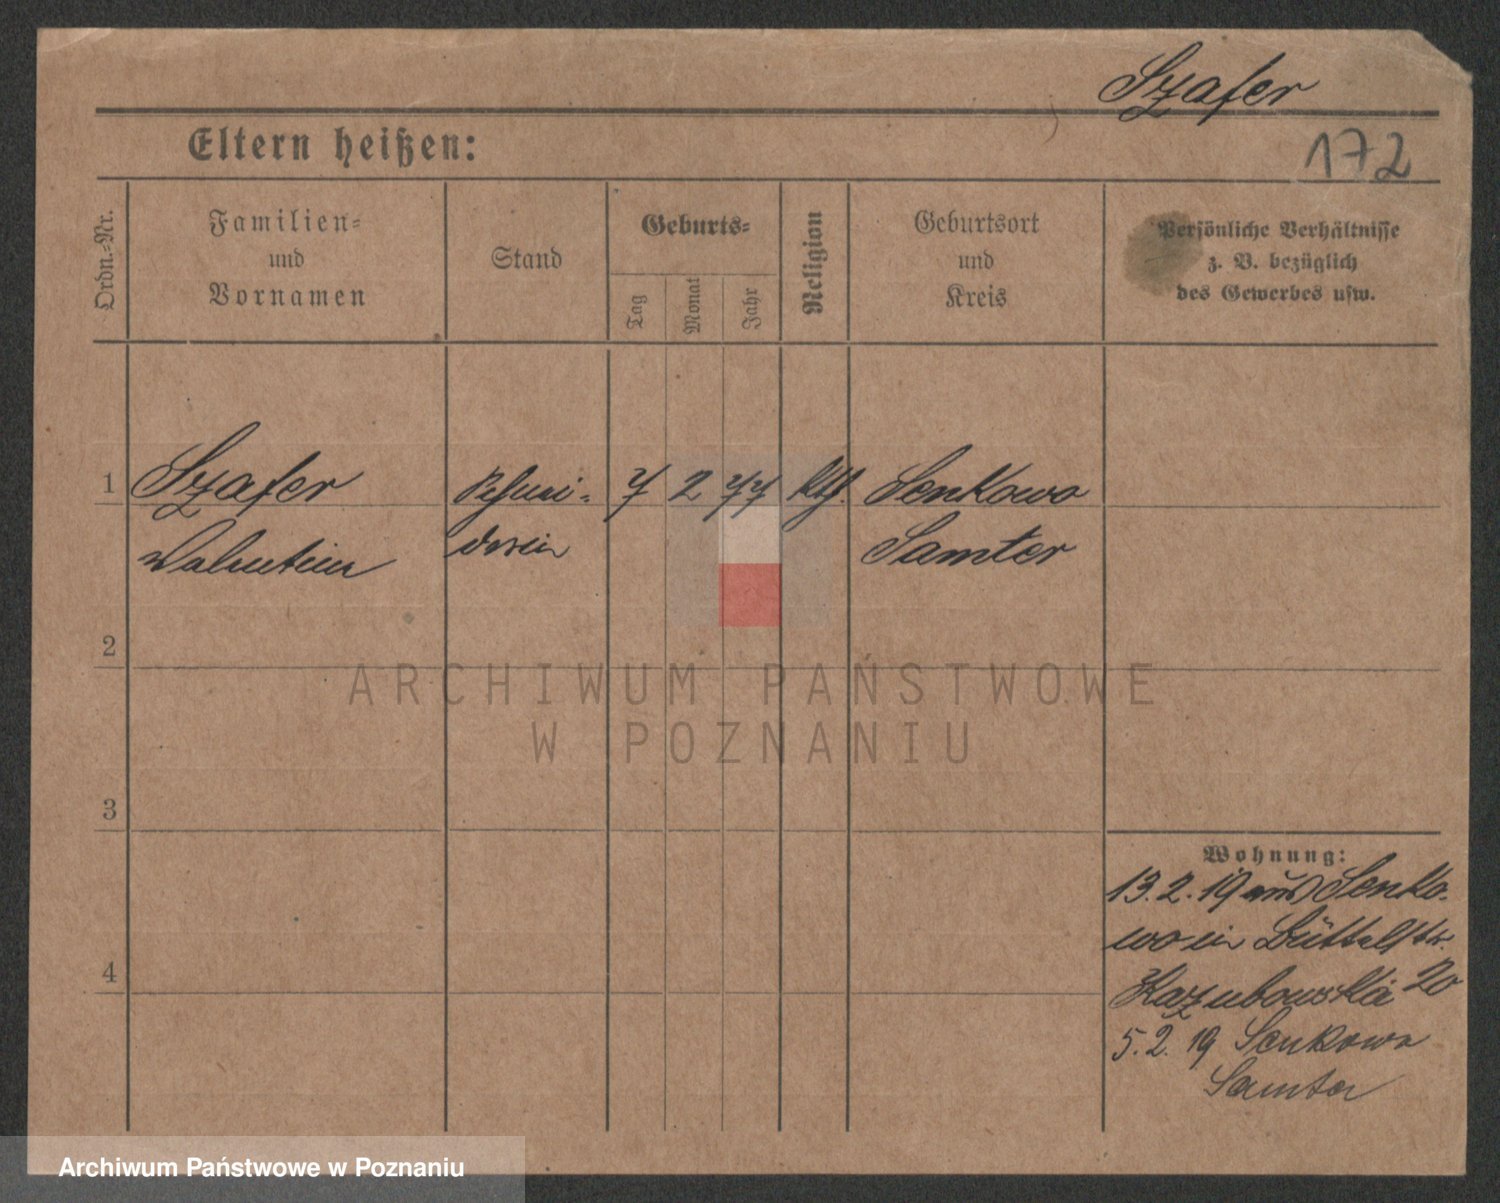 Szafer
Eltern heißen:
172
Ordn.-Nr.
Familien-
und
Vornamen
Stand
Geburts-
Tag
Monat
Jahr
Religion
Geburtsort
und
Kreis
Persönliche Verhältnisse
z. B. bezüglich
des Gewerbes usw.
1
Szafer
Valentine
Schnei-
derin
7
2
77
kth.
Senkowo
Samter
2
3
4
Wohnung:
13.2.19 aus Senko-
wo in Büttelstr.
Kazubowska 20
5.2.19 Senkowo
Samter
ARCHIWUM PAŃSTWOWE
W POZNANIU
Archiwum Państwowe w Poznaniu